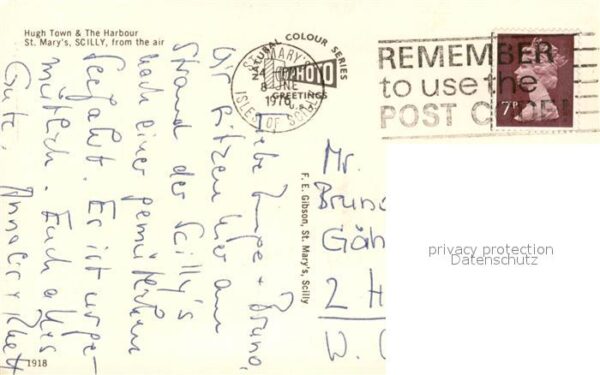 Hugh Town & The Harbour
St. Mary's, SCILLY, from the air
NATURAL COLOUR SERIES
PHOTO
GREETINGS
ST MARY'S
24
8 JNE
1976
ISLES OF SCILLY
REMEMBER
to use the
POST CODE
7P
Liebe + Bruno,
Wir sitzen hier am
Strand der Scilly's
nach einer gemütlichen
Seefahrt. Es ist urge-
mütlich. Euch alles
Gute,
F. E. Gibson, St. Mary's, Scilly
Mr.
Brun
Gäh
2 H
W.
privacy protection
Datenschutz
1918